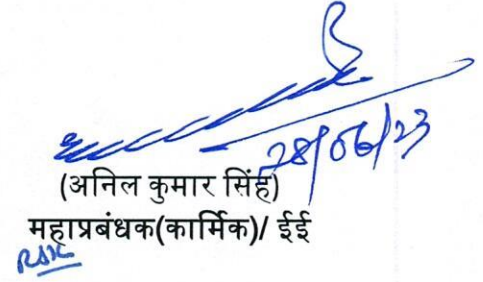 28/06/23
(अनिल कुमार सिंह)
महाप्रबंधक(कार्मिक)/ ईई